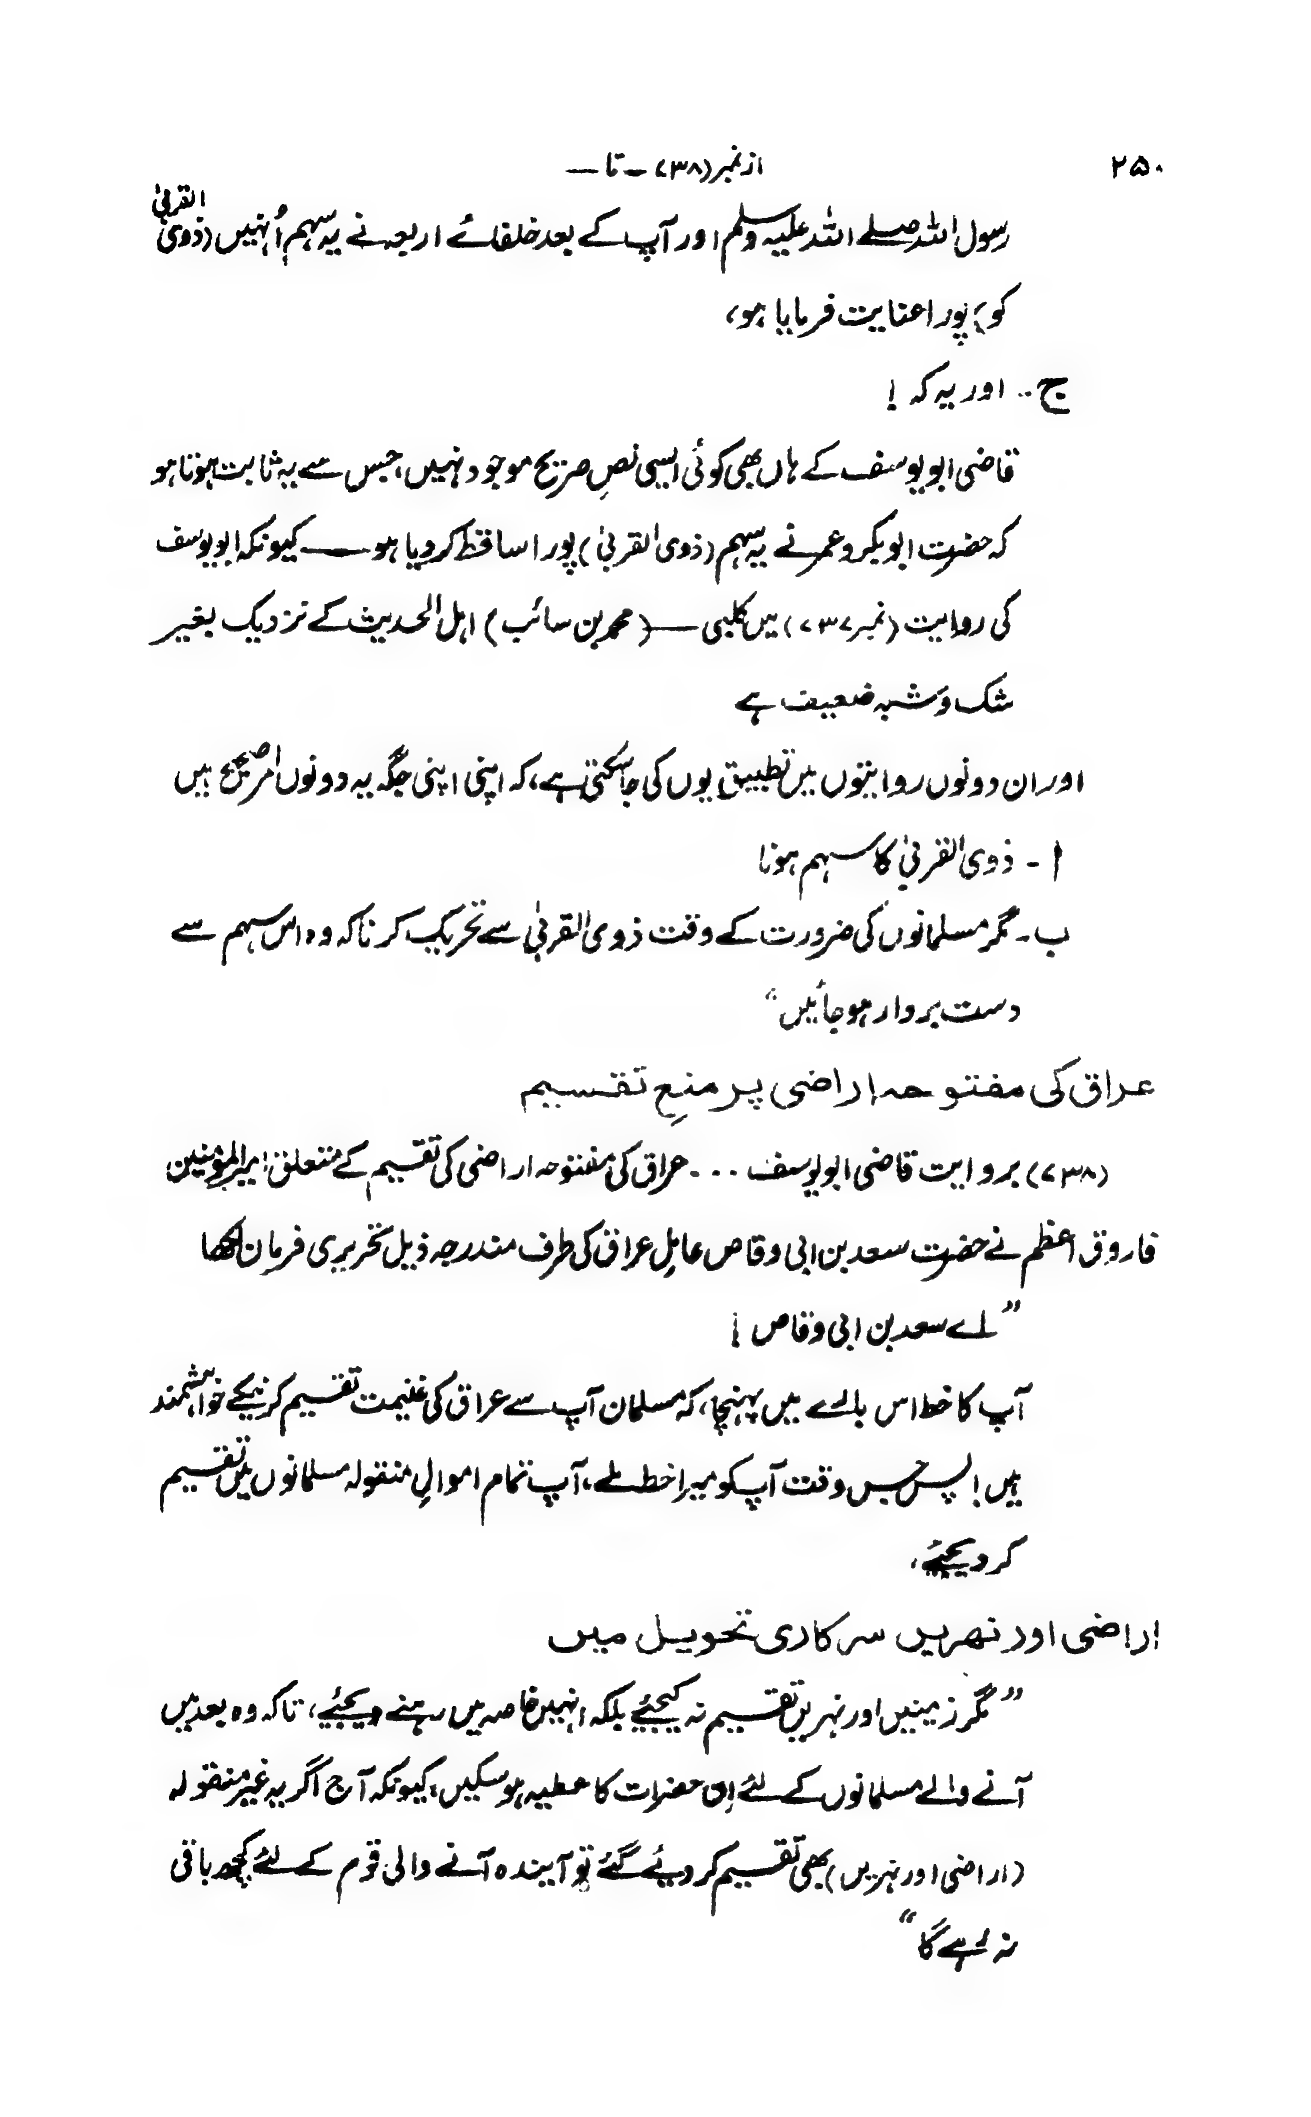 ۲۵۰
از نمبر (۷۳۸) ــ تا ــ
رسول اللہ صلے اللہ علیہ وسلم اور آپ کے بعد خلفائے اربعہ نے یہ سہم اُنہیں (ذوی القربیٰ
کو) پورا عنایت فرمایا ہو،
ج .. اور یہ کہ !
قاضی ابو یوسف کے ہاں بھی کوئی ایسی نصِ صریح موجود نہیں، جس سے یہ ثابت ہوتا ہو
کہ حضرت ابوبکر و عمر نے یہ سہم (ذوی القربیٰ) پورا ساقط کر دیا ہو ــــ کیونکہ ابو یوسف
کی روایت (نمبر ۷۳۷) میں کلبی ــــ (محمد بن سائب) اہل الحدیث کے نزدیک بغیر
شک و شبہ ضعیف ہے
اور ان دونوں روایتوں میں تطبیق یوں کی جا سکتی ہے، کہ اپنی اپنی جگہ یہ دونوں امر صحیح ہیں
ا - ذوی القربیٰ کا سہم ہونا
ب - مگر مسلمانوں کی ضرورت کے وقت ذوی القربیٰ سے تحریک کرنا کہ وہ اس سہم سے
دست بردار ہو جائیں“
عراق کی مفتوحہ اراضی پر منعِ تقسیم
(۷۳۸) بروایت قاضی ابو یوسف ... - عراق کی مفتوحہ اراضی کی تقسیم کے متعلق امیر المؤمنین
فاروق اعظم نے حضرت سعد بن ابی وقاص عاملِ عراق کی طرف مندرجہ ذیل تحریری فرمان لکھا
”اے سعد بن ابی وقاص !
آپ کا خط اس بارے میں پہنچا، کہ مسلمان آپ سے عراق کی غنیمت تقسیم کرنیکے خواہشمند
ہیں! پس جس وقت آپکو میرا خط ملے، آپ تمام اموالِ منقولہ مسلمانوں میں تقسیم
کر دیجئے،
اراضی اور نہریں سرکاری تحویل میں
”مگر زمینیں اور نہریں تقسیم نہ کیجئے بلکہ انہیں خاصہ میں رہنے دیجئے، تاکہ وہ بعد میں
آنے والے مسلمانوں کے لئے ان حضرات کا عطیہ ہو سکیں، کیونکہ آج اگر یہ غیر منقولہ
(اراضی اور نہریں) بھی تقسیم کر دیئے گئے تو آیندہ آنے والی قوم کے لئے کچھ باقی
نہ رہے گا“